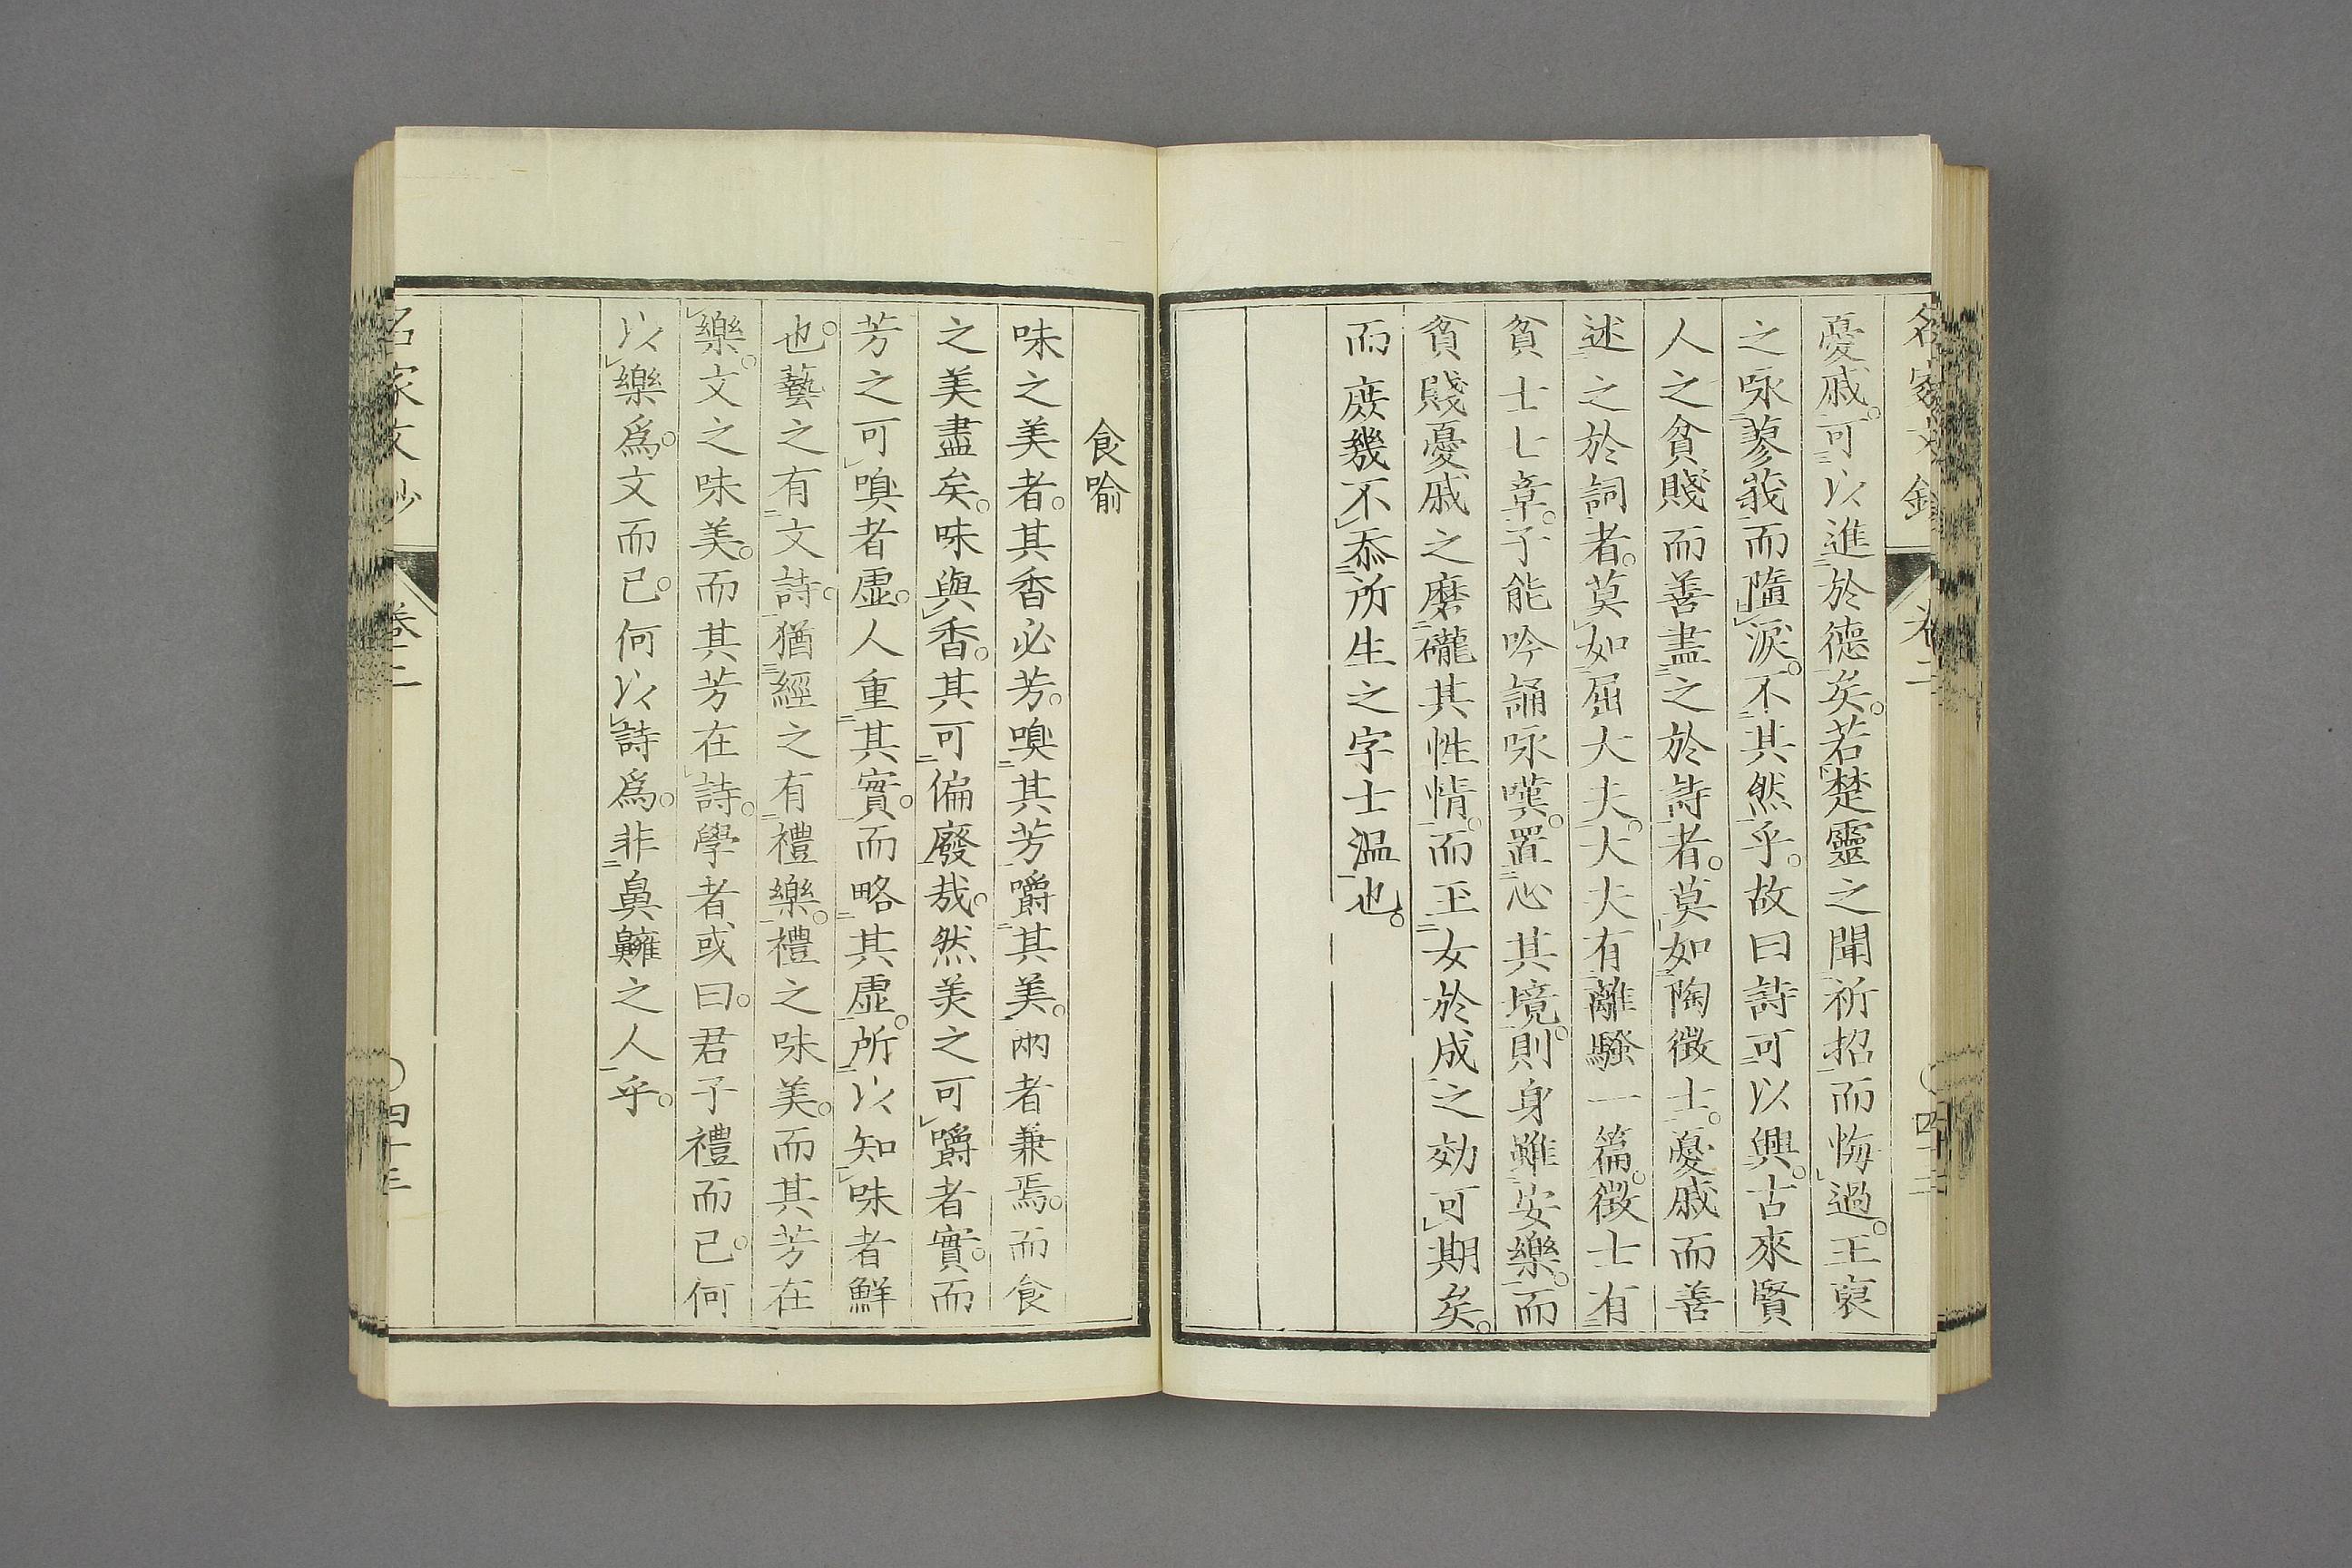 憂戚。可以進於德矣。若楚靈之聞祈招而悔過。王裒
之咏蓼莪而墮淚。不其然乎。故曰詩可以興。古來賢
人之貧賤而善盡之於詩者。莫如陶徴士。憂戚而善
述之於詞者。莫如屈大夫。大夫有離騷一篇。徴士有
貧士七章。子能吟誦咏嘆。置心其境。則身雖安樂。而
貧賤憂戚之磨礲其性情。而玉女於成之効可期矣。
而庶幾不忝所生之字士温也。
食喻
味之美者。其香必芳。嗅其芳嚼其美。兩者兼焉。而食
之美盡矣。味與香。其可偏廢哉。然美之可嚼者實。而
芳之可嗅者虛。人重其實。而略其虛。所以知味者鮮
也。藝之有文詩。猶經之有禮樂。禮之味美。而其芳在
樂。文之味美。而其芳在詩。學者或曰。君子禮而已。何
以樂爲。文而已。何以詩爲。非鼻齆之人乎。
名家文鈔
卷二
〇四十三